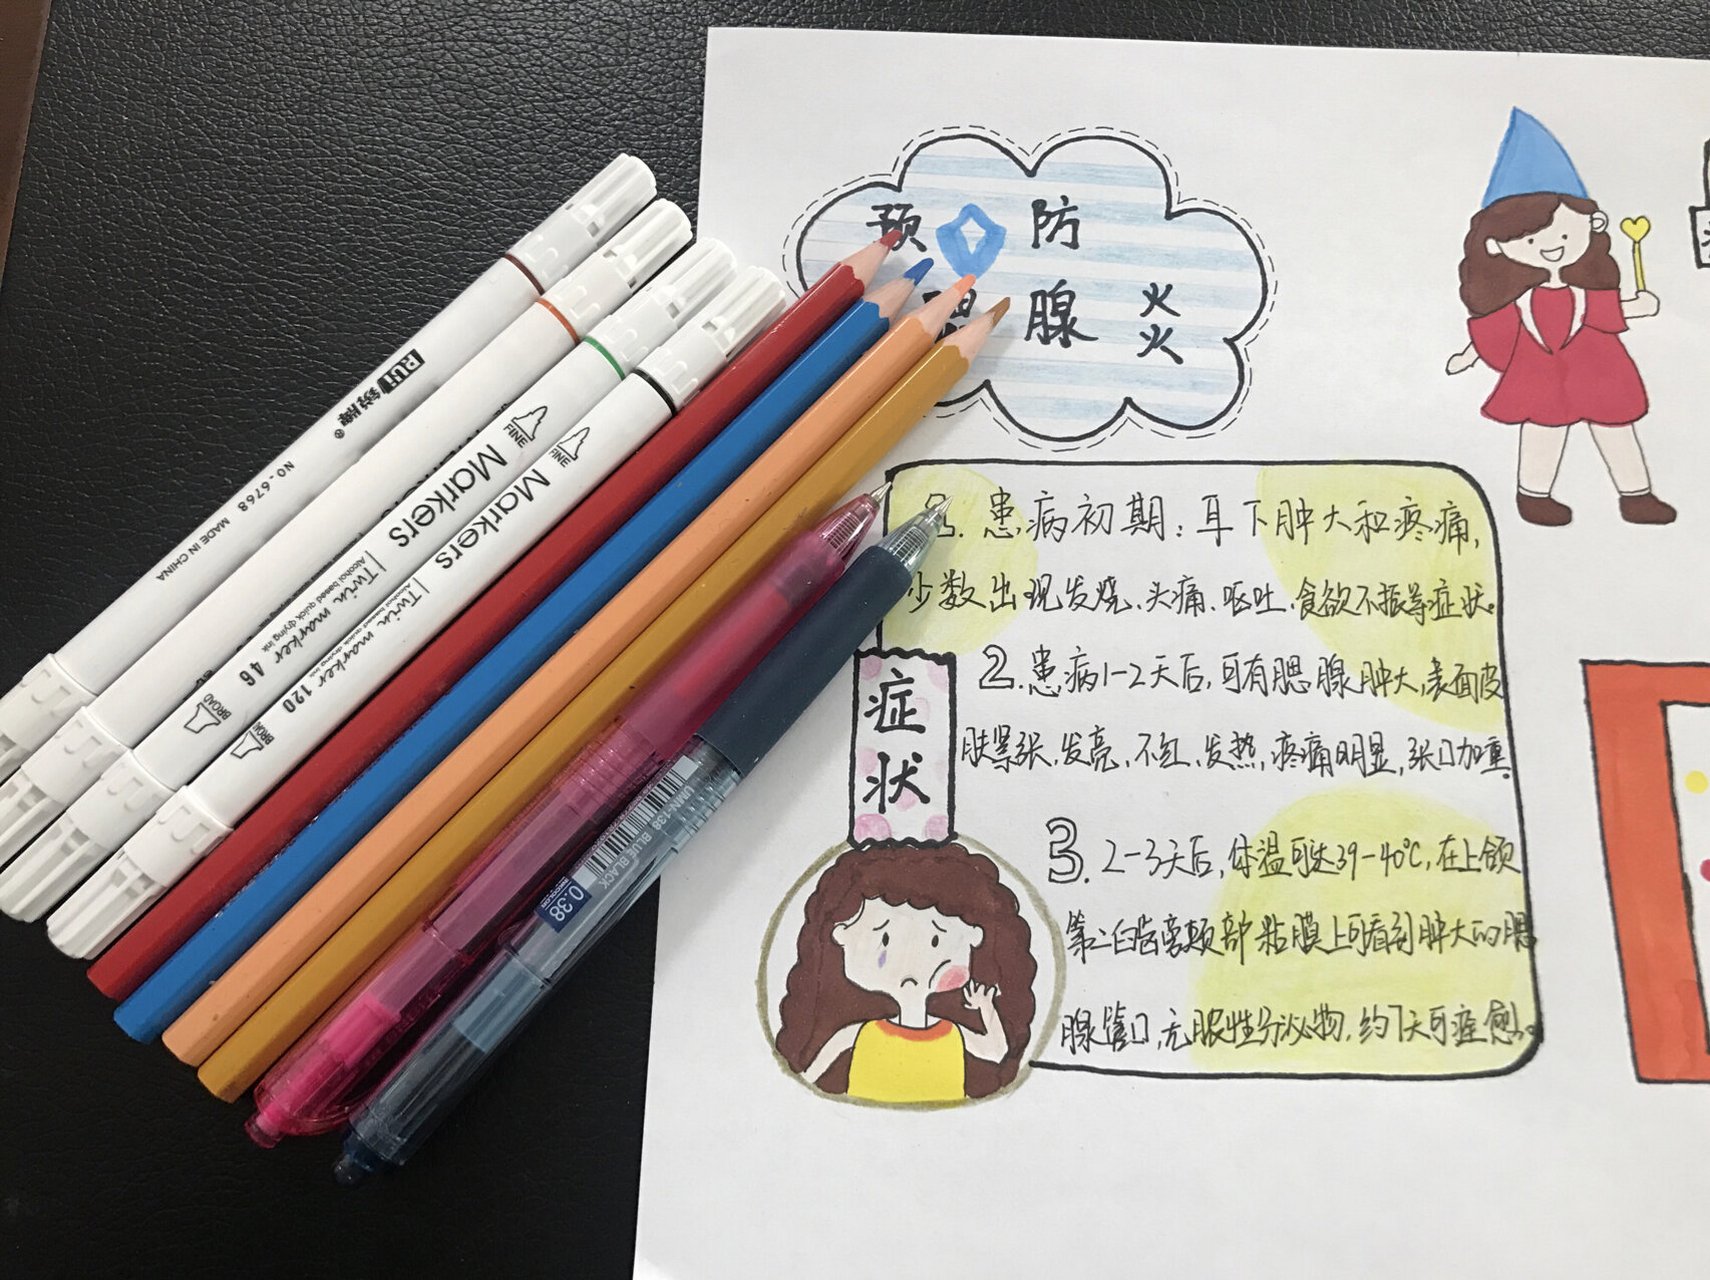 预防
腮腺炎
1. 患病初期:耳下肿大和疼痛,
少数出现发烧、头痛、呕吐、食欲不振等症状。
2. 患病1-2天后,可有腮腺肿大,表面皮
肤紧张,发亮,不红,发热,疼痛明显,张口加重。
3. 2-3天后,体温可达39-40℃,在上颌
第二臼齿旁颊部粘膜上可看到肿大的腮
腺管口,无脓性分泌物,约7天可痊愈。
症状
RUi 锐牌®
NO.6768 MADE IN CHINA
FINE
Markers
Twin marker 46
Alcohol based quick drying ink
BROAD
FINE
Markers
Twin marker 120
Alcohol based quick drying ink
BROAD
UMN-138 BLUE BLACK
0.38